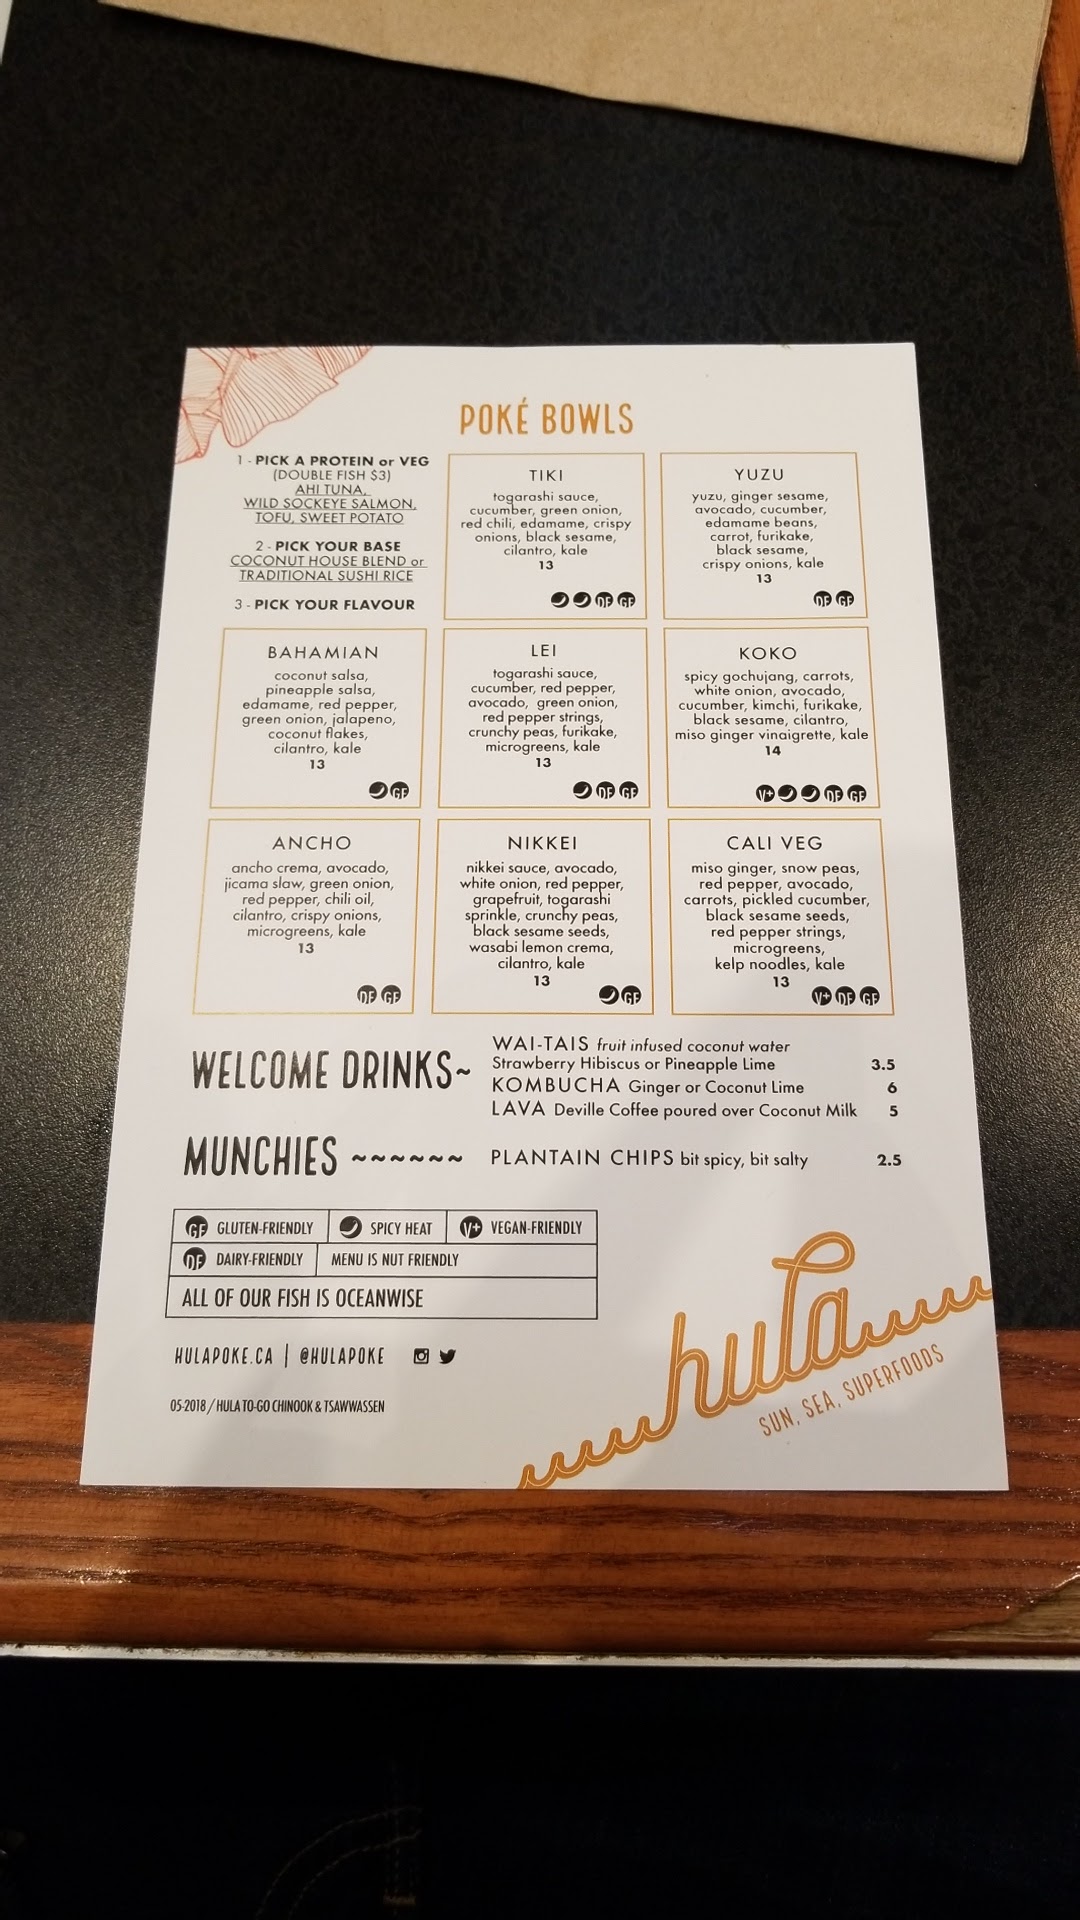 POKÉ BOWLS
1 - PICK A PROTEIN or VEG
(DOUBLE FISH $3)
AHI TUNA,
WILD SOCKEYE SALMON,
TOFU, SWEET POTATO
2 - PICK YOUR BASE
COCONUT HOUSE BLEND or
TRADITIONAL SUSHI RICE
3 - PICK YOUR FLAVOUR
TIKI
togarashi sauce,
cucumber, green onion,
red chili, edamame, crispy
onions, black sesame,
cilantro, kale
13
DF GF
YUZU
yuzu, ginger sesame,
avocado, cucumber,
edamame beans,
carrot, furikake,
black sesame,
crispy onions, kale
13
DF GF
BAHAMIAN
coconut salsa,
pineapple salsa,
edamame, red pepper,
green onion, jalapeno,
coconut flakes,
cilantro, kale
13
GF
LEI
togarashi sauce,
cucumber, red pepper,
avocado, green onion,
red pepper strings,
crunchy peas, furikake,
microgreens, kale
13
DF GF
KOKO
spicy gochujang, carrots,
white onion, avocado,
cucumber, kimchi, furikake,
black sesame, cilantro,
miso ginger vinaigrette, kale
14
V+ DF GF
ANCHO
ancho crema, avocado,
jicama slaw, green onion,
red pepper, chili oil,
cilantro, crispy onions,
microgreens, kale
13
DF GF
NIKKEI
nikkei sauce, avocado,
white onion, red pepper,
grapefruit, togarashi
sprinkle, crunchy peas,
black sesame seeds,
wasabi lemon crema,
cilantro, kale
13
GF
CALI VEG
miso ginger, snow peas,
red pepper, avocado,
carrots, pickled cucumber,
black sesame seeds,
red pepper strings,
microgreens,
kelp noodles, kale
13
V+ DF GF
WELCOME DRINKS~
WAI-TAIS fruit infused coconut water
Strawberry Hibiscus or Pineapple Lime 3.5
KOMBUCHA Ginger or Coconut Lime 6
LAVA Deville Coffee poured over Coconut Milk 5
MUNCHIES ~~~~~~ PLANTAIN CHIPS bit spicy, bit salty 2.5
GF GLUTEN-FRIENDLY SPICY HEAT V+ VEGAN-FRIENDLY
DF DAIRY-FRIENDLY MENU IS NUT FRIENDLY
ALL OF OUR FISH IS OCEANWISE
HULAPOKE.CA | @HULAPOKE
05-2018 / HULA TO-GO CHINOOK & TSAWWASSEN
hula
SUN, SEA, SUPERFOODS